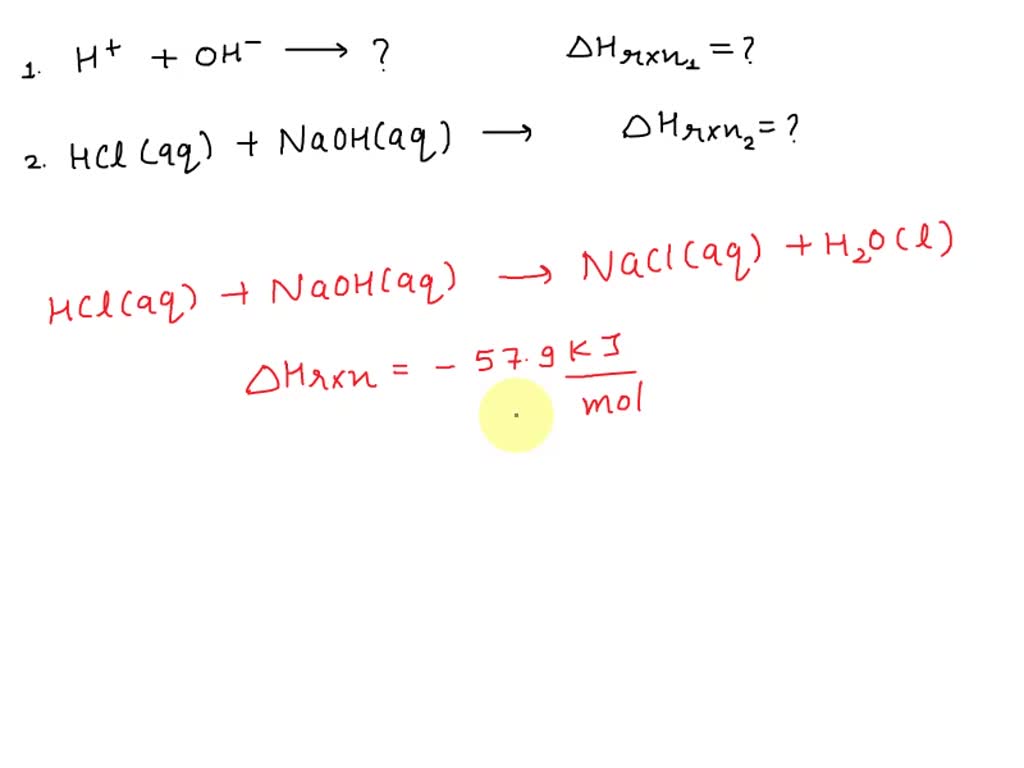 1. H⁺ + OH⁻ ⟶ ? ΔHrxn₁ = ?
2. HCl (aq) + NaOH(aq) ⟶ ΔHrxn₂ = ?
HCl(aq) + NaOH(aq) ⟶ NaCl(aq) + H₂O(l)
ΔHrxn = - 57.9 KJ/mol